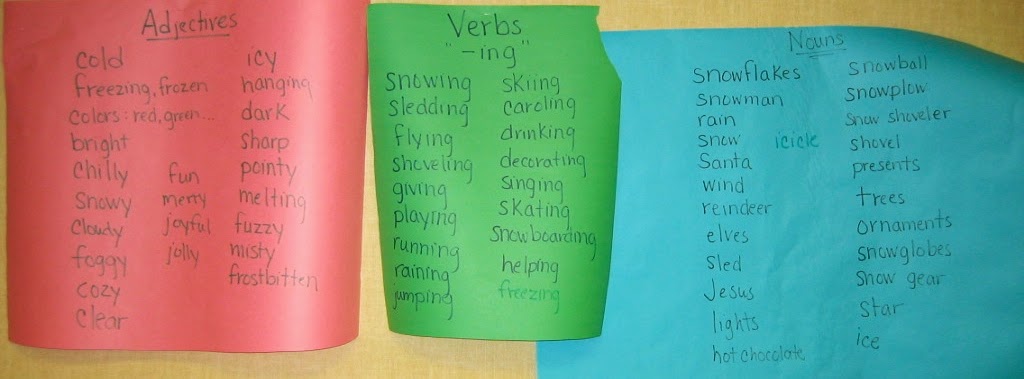 Adjectives
cold
freezing, frozen
colors: red, green...
bright
chilly
snowy
cloudy
foggy
cozy
clear
fun
merry
joyful
jolly
icy
hanging
dark
sharp
pointy
melting
fuzzy
misty
frostbitten
Verbs
"-ing"
snowing
sledding
flying
shoveling
giving
playing
running
raining
jumping
skiing
caroling
drinking
decorating
singing
skating
snowboarding
helping
freezing
Nouns
snowflakes
snowman
rain
snow
Santa
wind
reindeer
elves
sled
Jesus
lights
hot chocolate
icicle
snowball
snowplow
snow shoveler
shovel
presents
trees
ornaments
snowglobes
snow gear
star
ice